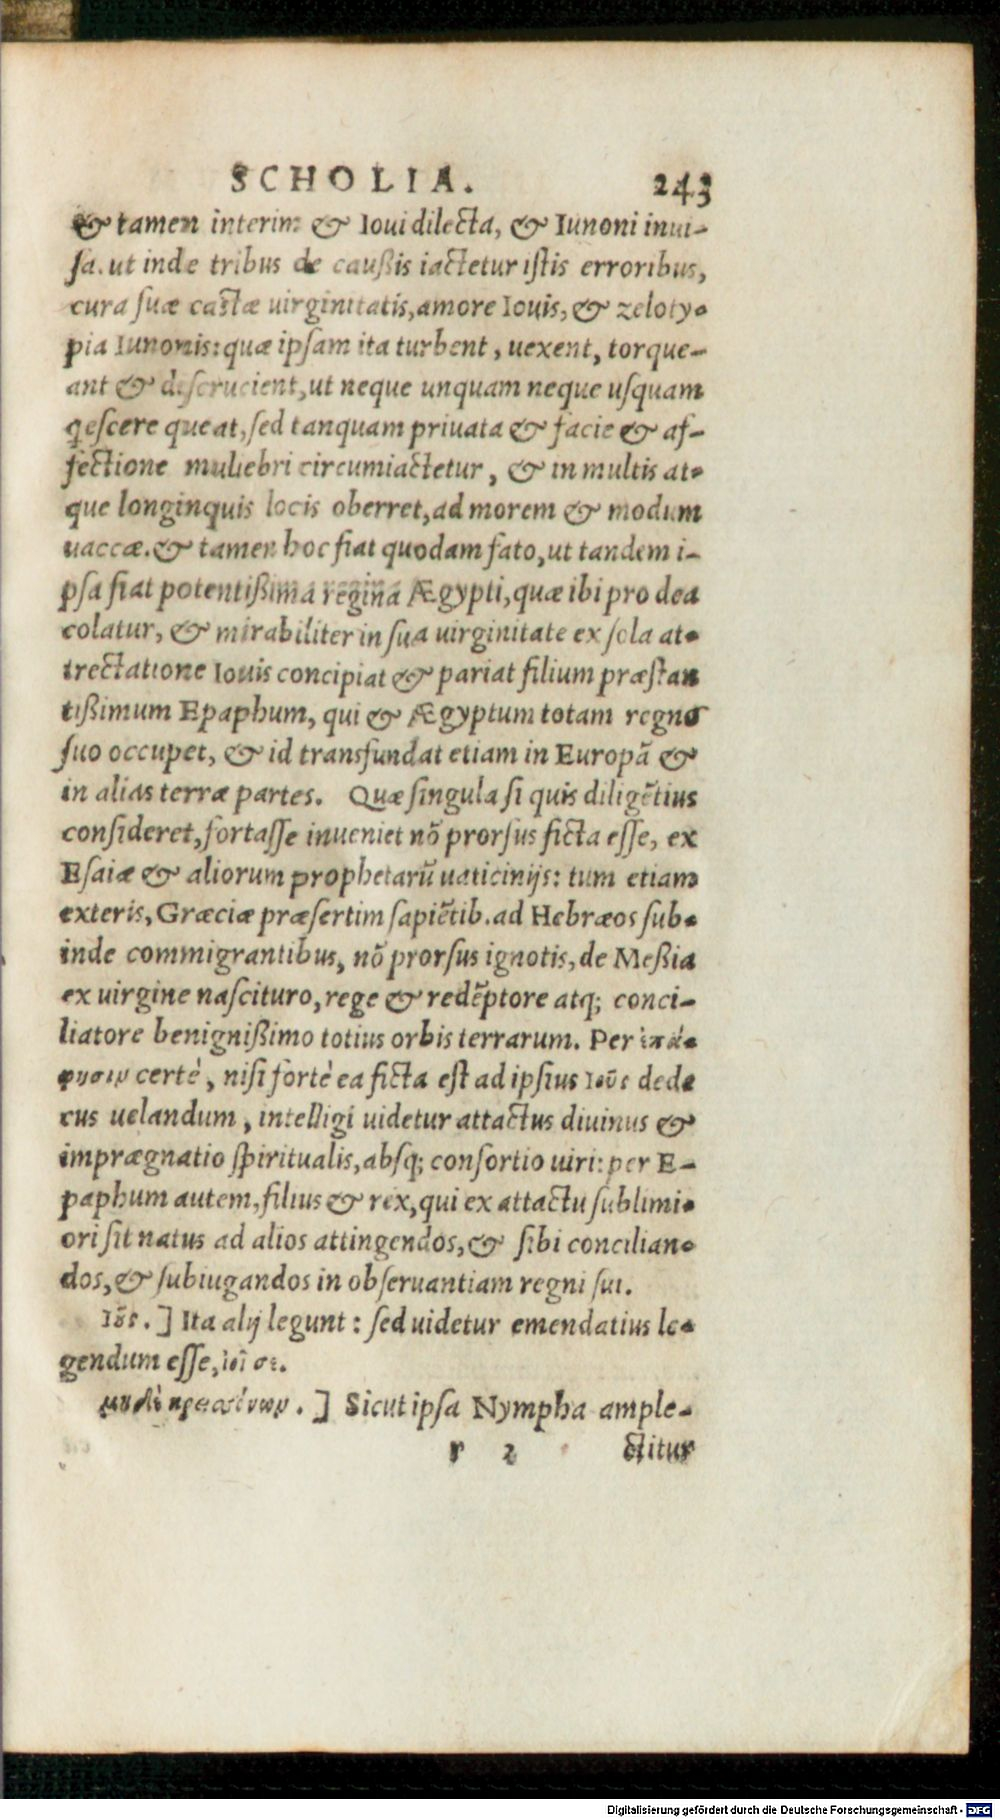 SCHOLIA. 243
& tamen interim & Ioui dilecta, & Iunoni inui-
ſa. ut inde tribus de caußis iactetur iſtis erroribus,
cura ſuæ castæ uirginitatis, amore Iouis, & zeloty-
pia Iunonis: quæ ipſam ita turbent, uexent, torque-
ant & diſcrucient, ut neque unquam neque uſquam
q̃eſcere queat, ſed tanquam priuata & facie & af-
fectione muliebri circumiactetur, & in multis at-
que longinquis locis oberret, ad morem & modum
uaccæ. & tamen hoc fiat quodam fato, ut tandem i-
pſa fiat potentißima regina Ægypti, quæ ibi pro dea
colatur, & mirabiliter in ſua uirginitate ex ſola at-
trectatione Iouis concipiat & pariat filium præſtan
tißimum Epaphum, qui & Ægyptum totam regno
ſuo occupet, & id transfundat etiam in Europã &
in alias terræ partes. Quæ ſingula ſi quis diligẽtius
conſideret, fortaſſe inueniet nõ prorſus ficta eſſe, ex
Eſaiæ & aliorum prophetarũ uaticinijs: tum etiam
exteris, Græciæ præſertim ſapiẽtib. ad Hebræos ſub-
inde commigrantibus, nõ prorſus ignotis, de Meßia
ex uirgine naſcituro, rege & redẽptore atq; conci-
liatore benignißimo totius orbis terrarum. Per ἐπά-
φυσιν certè, niſi fortè ea ficta eſt ad ipſius Ἰοῦς dede
cus uelandum, intelligi uidetur attactus diuinus &
imprægnatio ſpiritualis, abſq; conſortio uiri: per E-
paphum autem, filius & rex, qui ex attactu ſublimi-
ori ſit natus ad alios attingendos, & ſibi concilian-
dos, & ſubiugandos in obſeruantiam regni ſui.
Ἰοῦς.] Ita alij legunt: ſed uidetur emendatius le-
gendum eſſe,
] Sicut ipſa Nympha ample-
r 2 ctitur
Digitalisierung gefördert durch die Deutsche Forschungsgemeinschaft - DFG